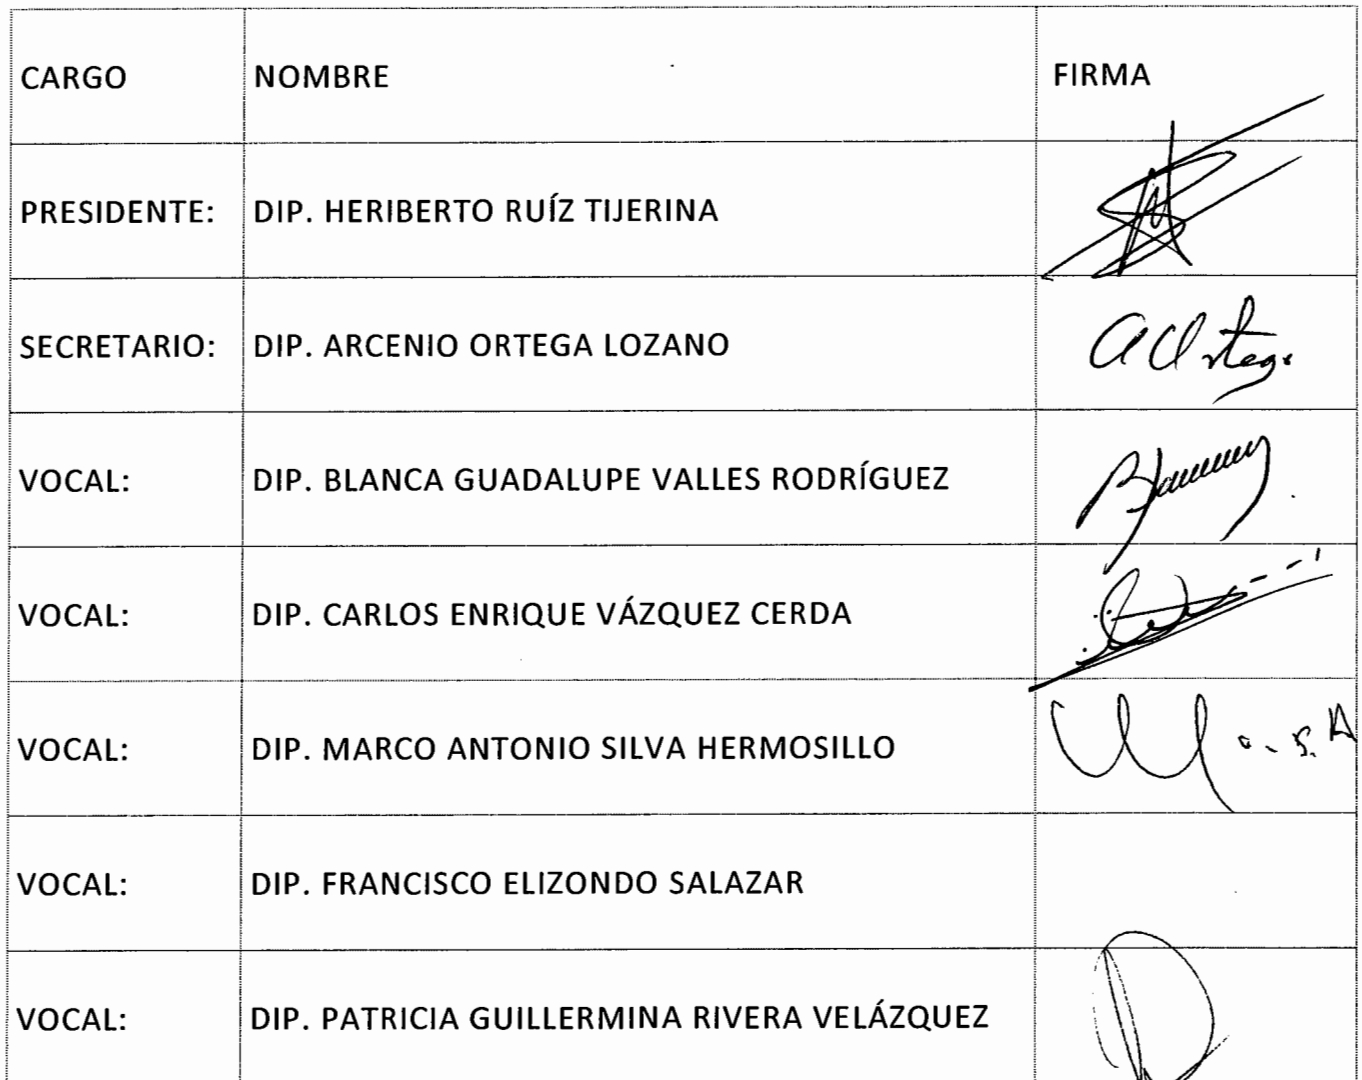 CARGO NOMBRE FIRMA
PRESIDENTE: DIP. HERIBERTO RUÍZ TIJERINA
SECRETARIO: DIP. ARCENIO ORTEGA LOZANO
VOCAL: DIP. BLANCA GUADALUPE VALLES RODRÍGUEZ
VOCAL: DIP. CARLOS ENRIQUE VÁZQUEZ CERDA
VOCAL: DIP. MARCO ANTONIO SILVA HERMOSILLO
VOCAL: DIP. FRANCISCO ELIZONDO SALAZAR
VOCAL: DIP. PATRICIA GUILLERMINA RIVERA VELÁZQUEZ